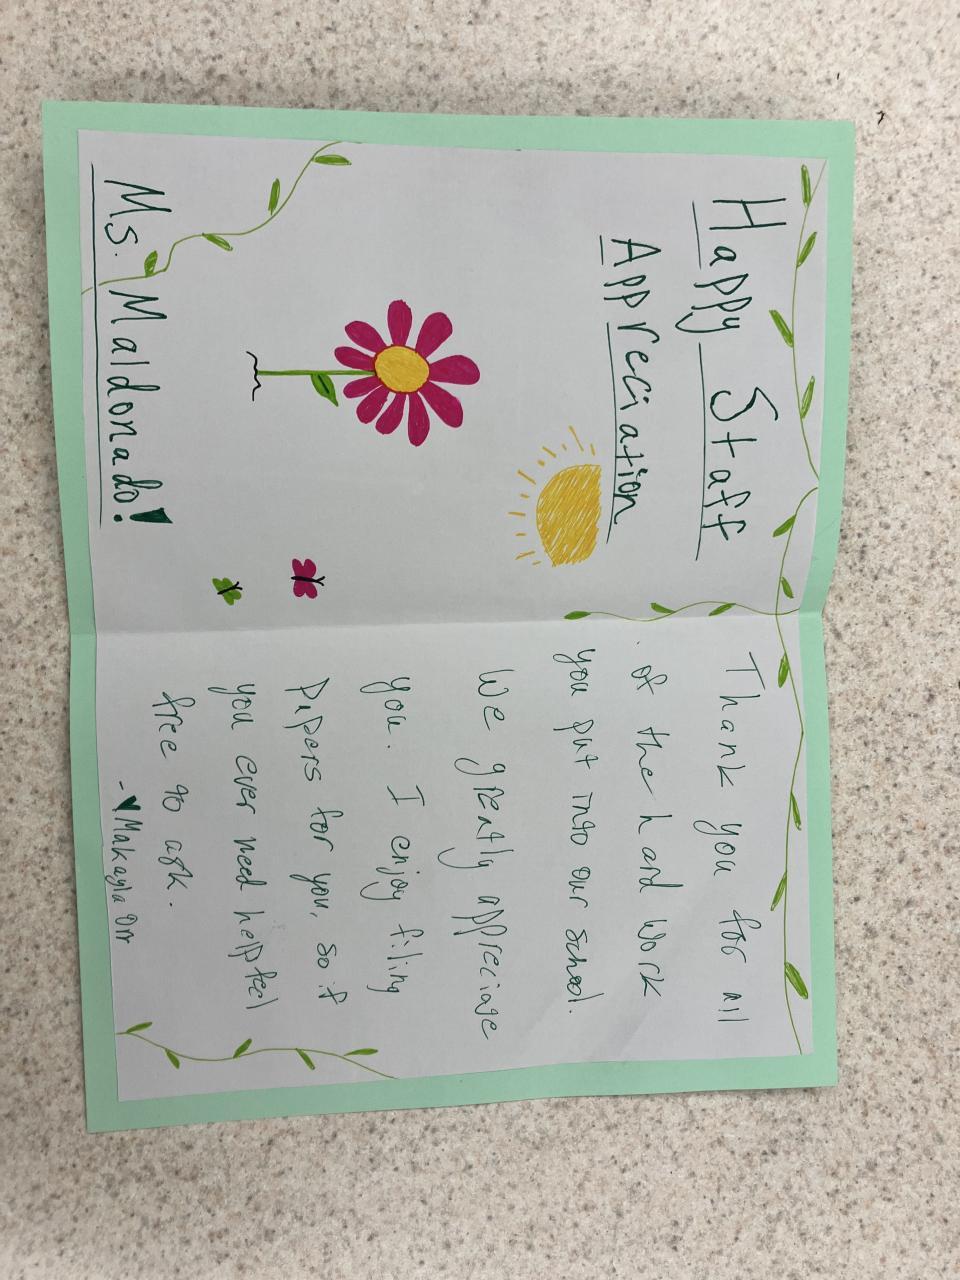 Happy Staff
Appreciation
Ms. Maldonado!
Thank you for all
of the hard work
you put into our school.
We greatly appreciate
you. I enjoy filing
papers for you, so if
you ever need help feel
free to ask.
- ♥ Makayla Orr